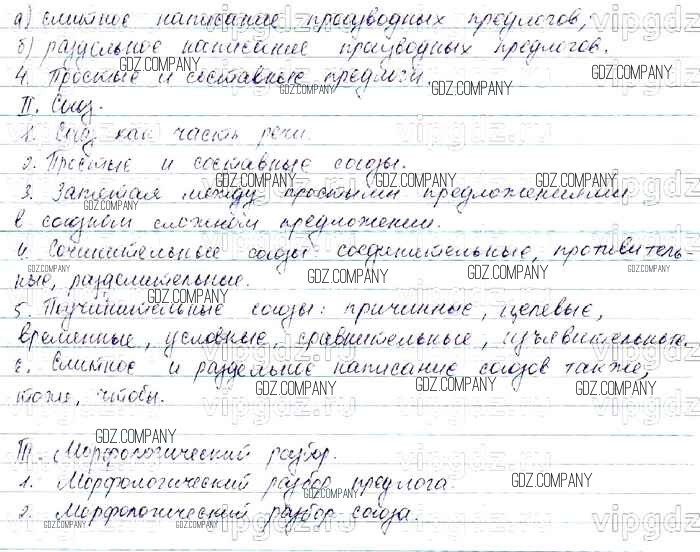 а) слитное написание производных предлогов;
б) раздельное написание производных предлогов.
4. Простые и составные предлоги.
II. Союз.
1. Союз как часть речи.
2. Простые и составные союзы.
3. Запятая между простыми предложениями
в союзном сложном предложении.
4. Сочинительные союзы: соединительные, противитель-
ные, разделительные.
5. Подчинительные союзы: причинные, целевые,
временные, условные, сравнительные, изъявительные.
6. Слитное и раздельное написание союзов также,
тоже, чтобы.
III. Морфологический разбор.
1. Морфологический разбор предлога.
2. Морфологический разбор союза.